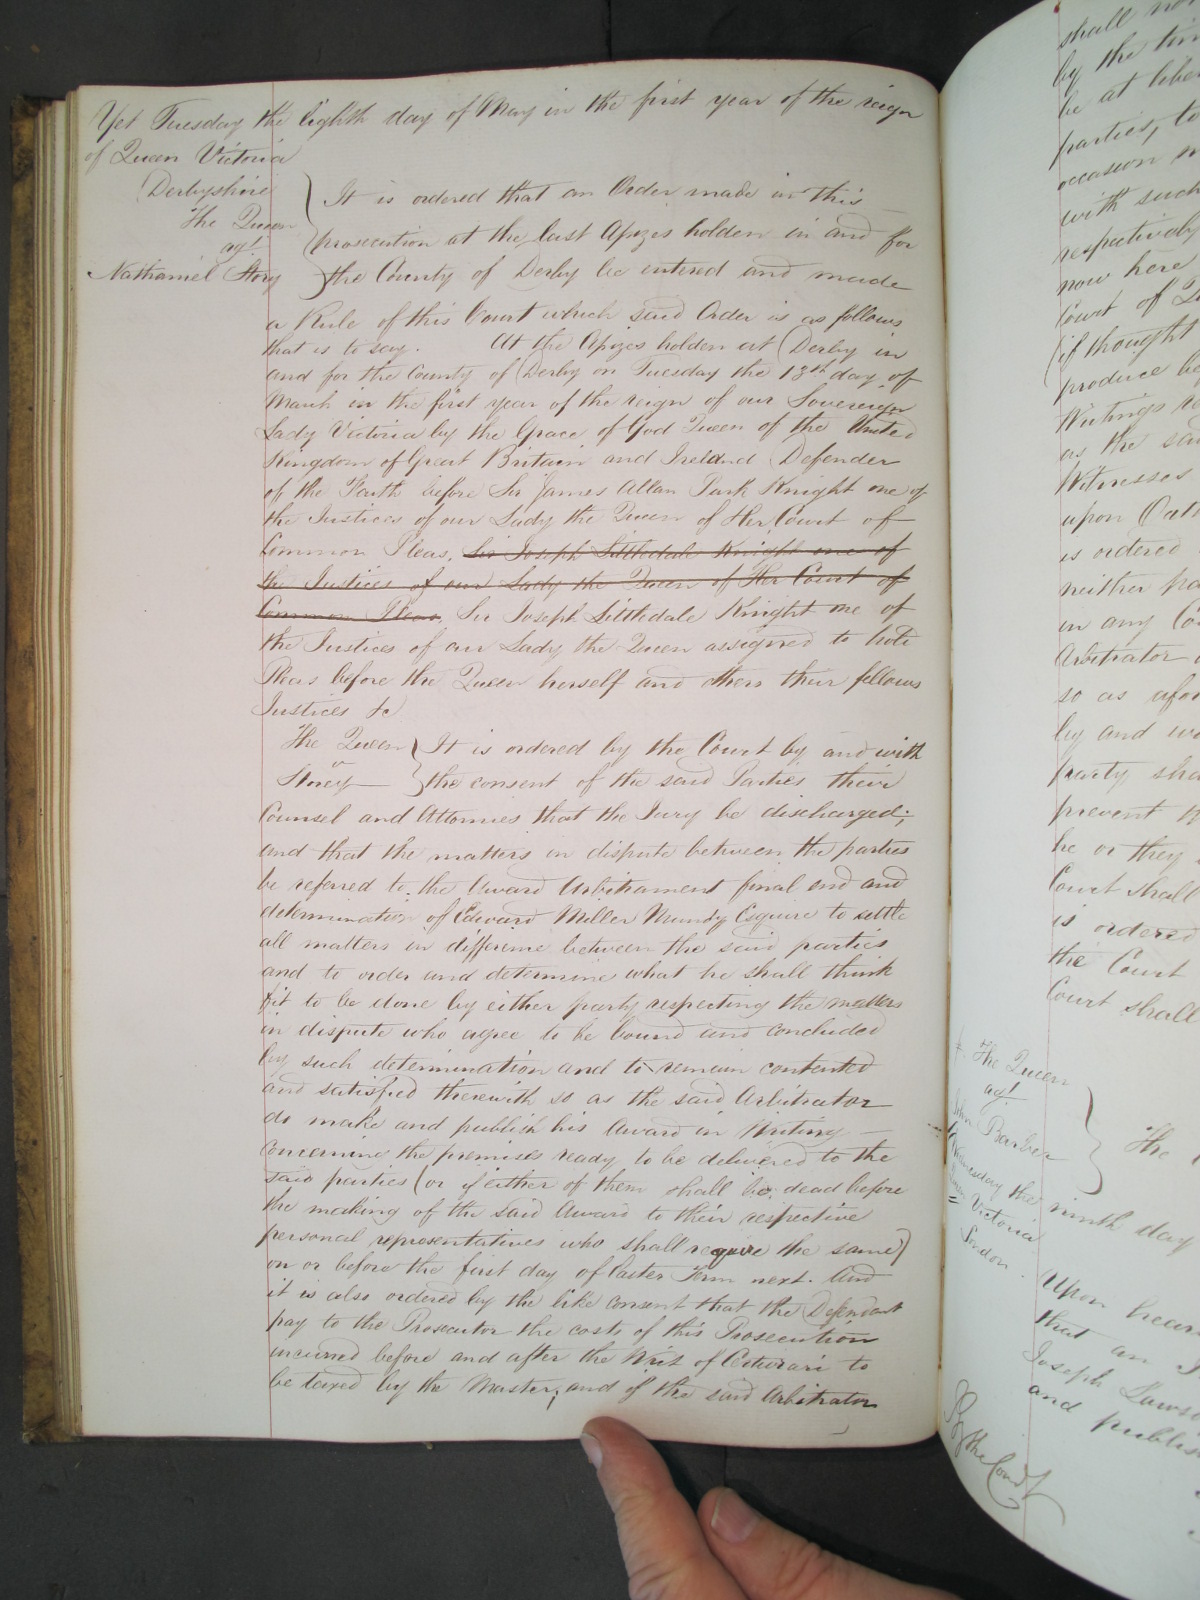 Yet Tuesday the Eighth day of May in the first year of the reign
of Queen Victoria
Derbyshire
The Queen
agt.
Nathaniel Story
It is ordered that an Order made in this
prosecution at the last Assizes holden in and for
the County of Derby be entered and made
a Rule of this Court which said Order is as follows
that is to say. At the Assizes holden at Derby in
and for the County of Derby on Tuesday the 13th day of
March in the first year of the reign of our Sovereign
Lady Victoria by the Grace of God Queen of the United
Kingdom of Great Britain and Ireland Defender
of the Faith before Sir James Allan Park Knight one of
the Justices of our Lady the Queen of Her Court of
Common Pleas, Sir Joseph Littledale Knight one of
the Justices of our Lady the Queen of Her Court of
Common Pleas, Sir Joseph Littledale Knight one of
the Justices of our Lady the Queen assigned to hold
Pleas before the Queen herself and others their fellows
Justices &c
The Queen
v
Storey
It is ordered by the Court by and with
the consent of the said Parties their
Counsel and Attornies that the Jury be discharged;
and that the matters in dispute between the parties
be referred to the Award Arbitrament final end and
determination of Edward Miller Mundy Esquire to settle
all matters in difference between the said parties
and to order and determine what he shall think
fit to be done by either party respecting the matters
in dispute who agree to be bound and concluded
by such determination and to remain contented
and satisfied therewith so as the said Arbitrator
do make and publish his Award in Writing
concerning the premises ready to be delivered to the
said parties (or if either of them shall be dead before
the making of the said Award to their respective
personal representatives who shall require the same)
on or before the first day of Easter Term next. And
it is also ordered by the like consent that the Defendant
pay to the Prosecutor the costs of this Prosecution
incurred before and after the Writ of Certiorari to
be taxed by the Master; and if the said Arbitrator
shall not
by the tim
be at liber
parties, to
occasion
with such
respectively
now here
Court of
(if thought
produce
Writings
as the said
Witnesses
upon Oath
is ordered
neither pa
in any Co
Arbitrator
so as afor
by and
party sha
prevent
he or they
Court shall
is ordered
the Court
Court shall
The Queen
agt.
John Barber
The
Wednesday the ninth day
Queen Victoria
London.
Upon hear
that an
Joseph Laws
and publis
By the Court